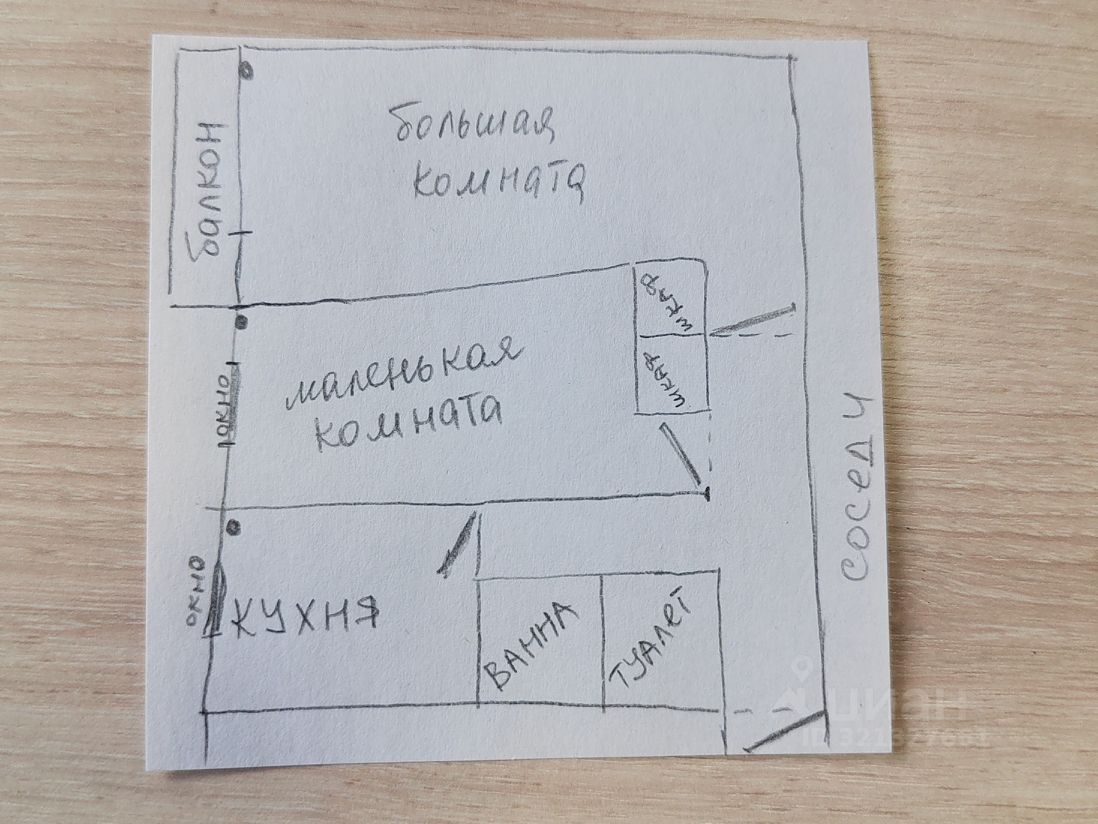 большая
комната
балкон
шкаф
шкаф
маленькая
комната
окно
СОСЕДИ
окно
КУХНЯ
ВАННА
ТУАЛЕТ
циан